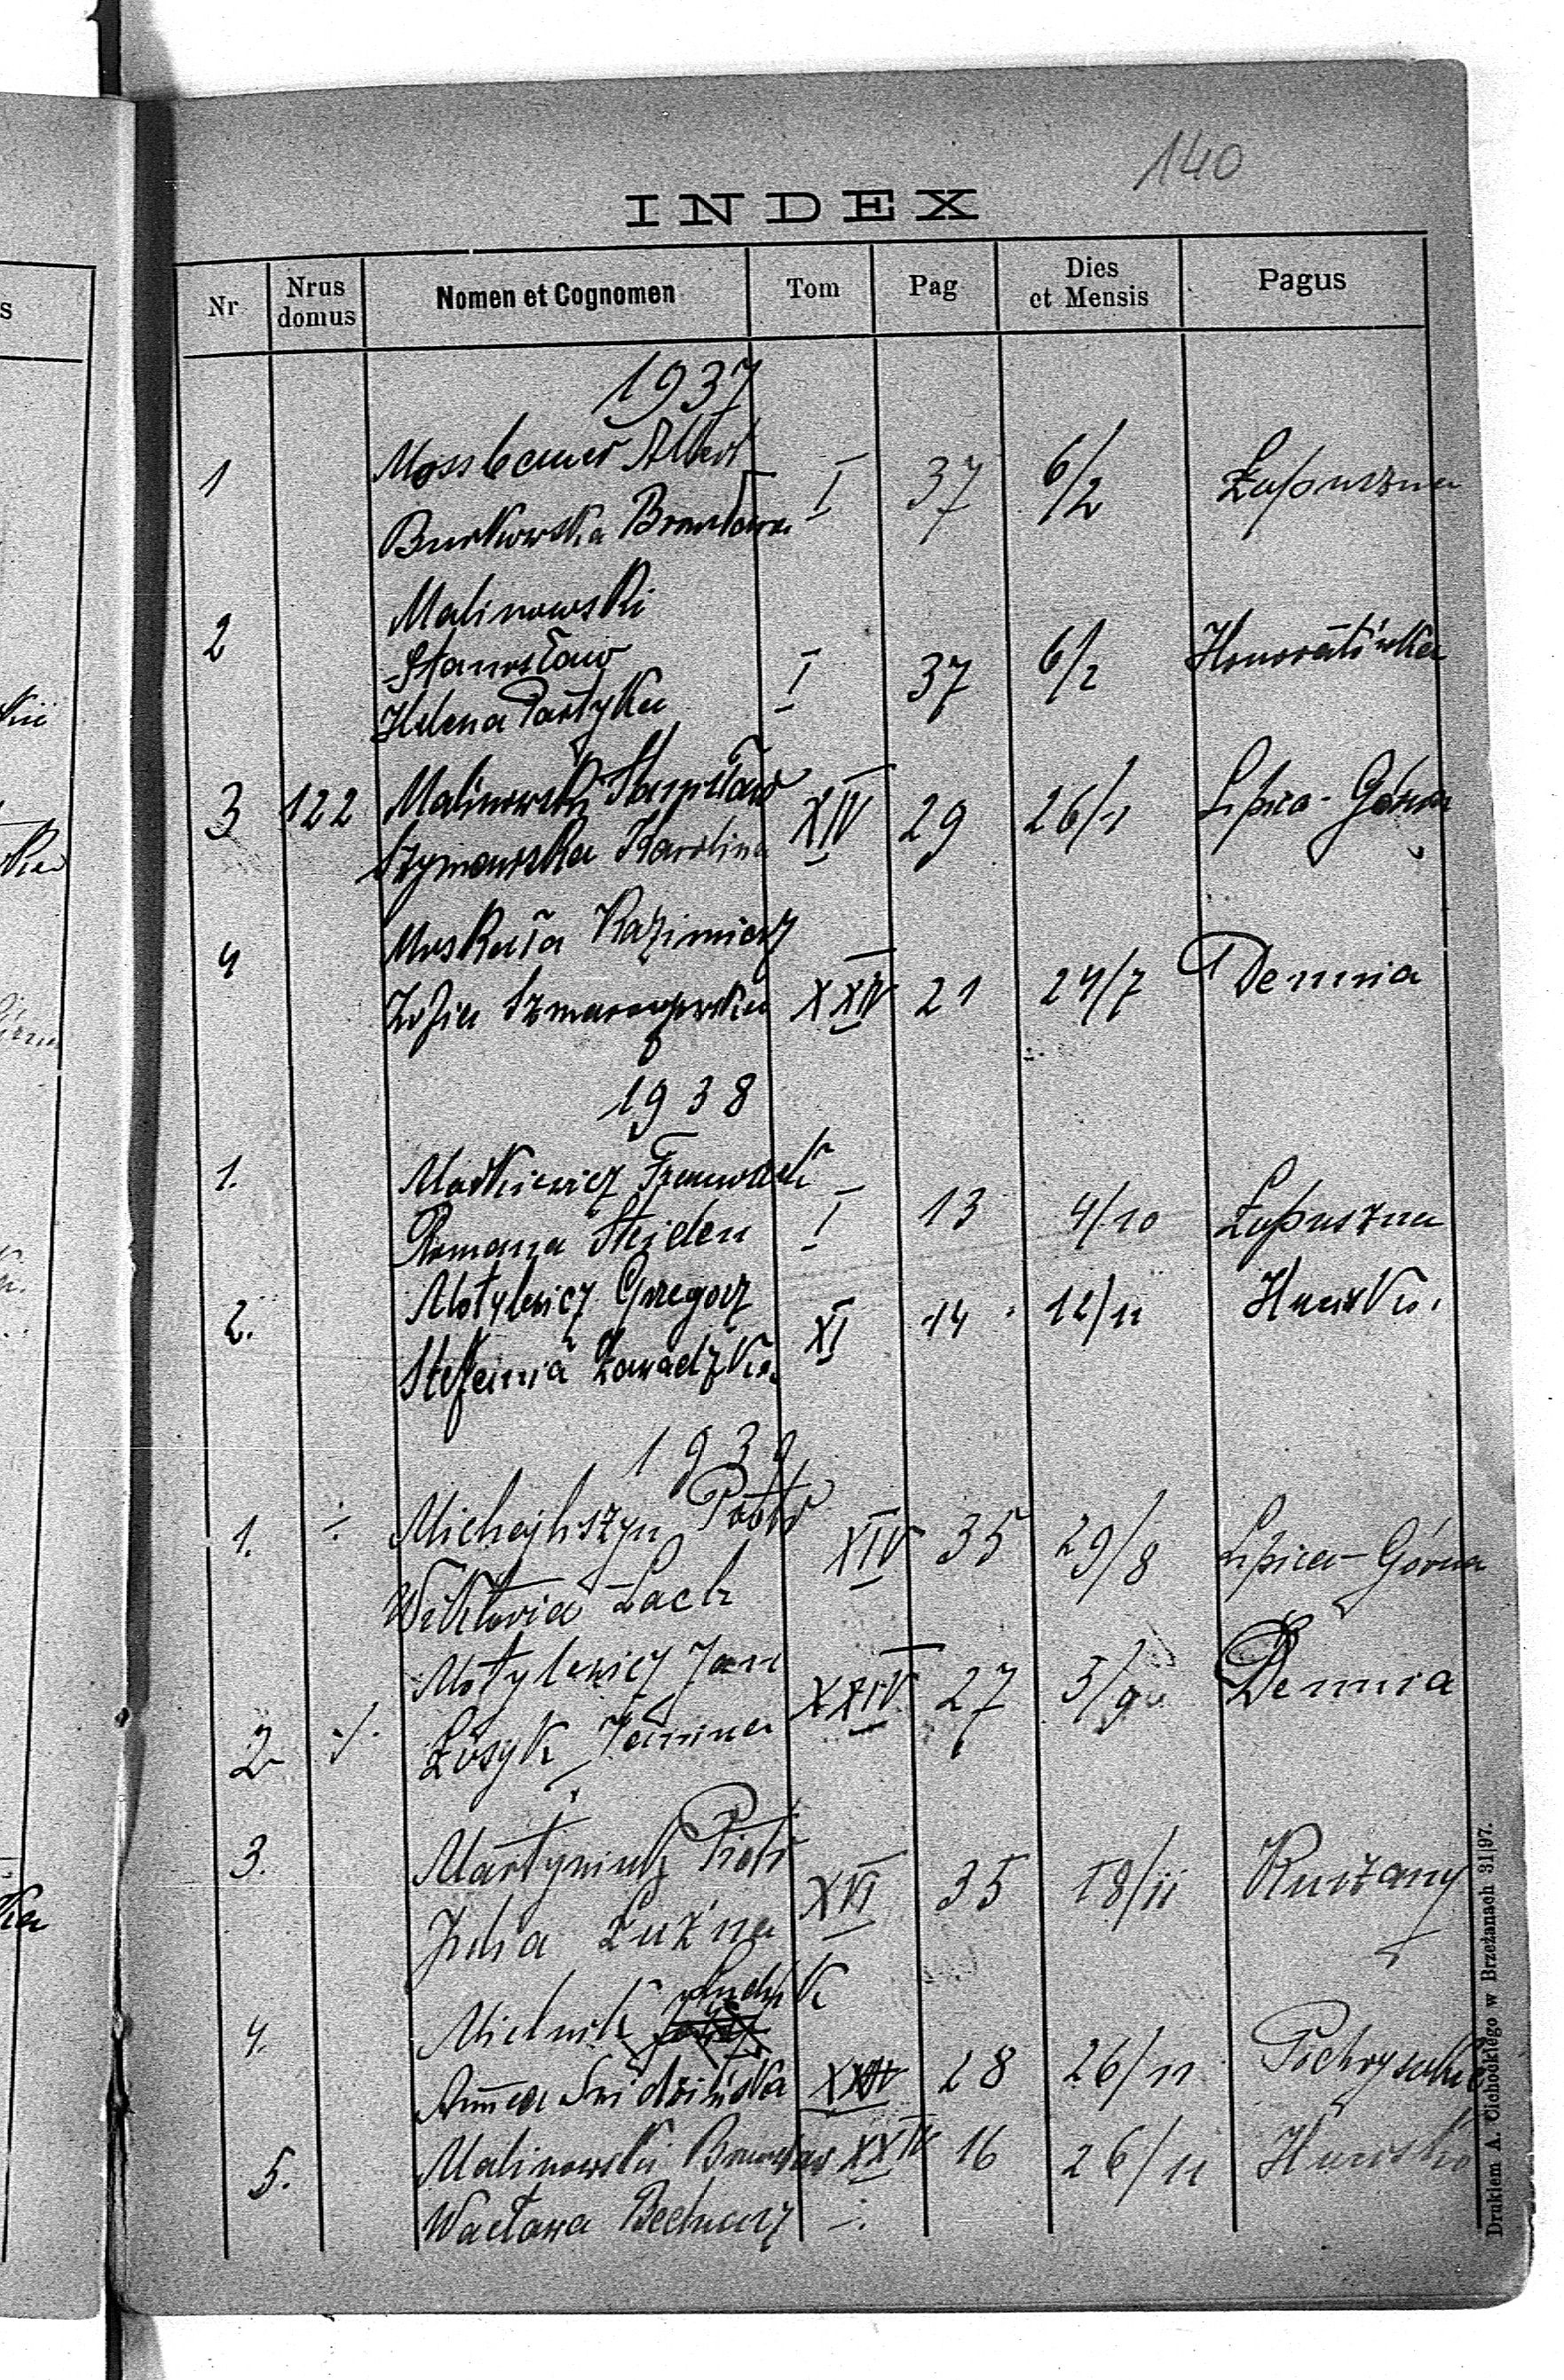 140
INDEX
Nr Nrus domus Nomen et Cognomen Tom Pag Dies et Mensis Pagus
1937
1 Mossbauer Albert I 37 6/2 Łapuszna
Burkowska Bronisława
2 Malinowski
Stanisław I 37 6/2 Honoratówka
Helena Partyka
3 122 Malinowski Stanisław XIV 29 26/1 Lipica-Górna
Szymańska Karolina
4 Muskała Kazimierz
Zofia XXIV 21 24/7 Demnia
1938
1. Maćkiewicz Franciszek
Romana I 13 4/10 Łapuszna
2. Motylewicz Grzegorz XI 14 12/11 Huciska
Stefania Zawadzka
1939
1. Michajliszyn Piotr XIV 35 29/8 Lipica-Górna
Wiktoria Lach
Motylewicz Jan XXIV 27 5/9 Demnia
2 Łusyk Janina
3. Martyniuk Piotr XVI 35 18/11 Kurzany
Julia Luźna
Ludwik
4. Mielnik
Anna XXIV 28 26/11
5. Malinowski Bronisław XXIV 16 26/11 Hucisko
Wacława Bednarz
Drukiem A. Cichockiego w Brzeżanach 31|97.